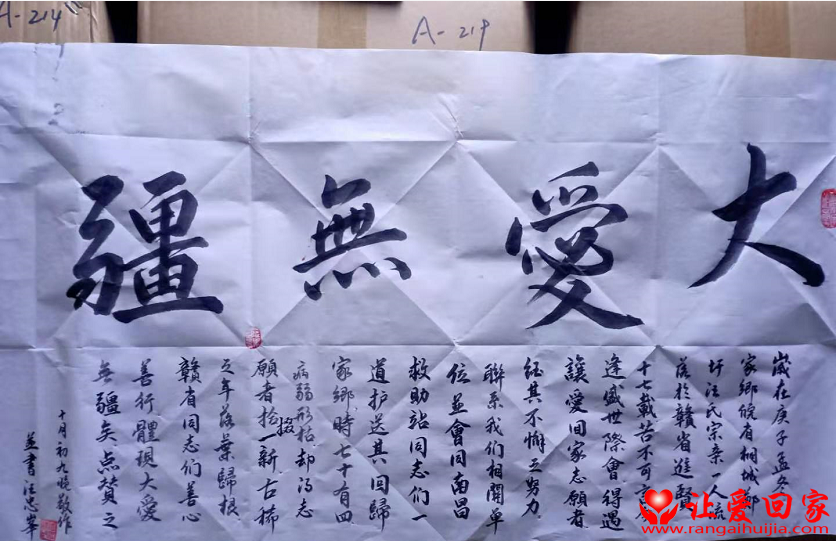 A-214
A-219
大愛無疆
歲在庚子孟冬
家鄉候有桐城鄒
圩汪氏宗亲一人流
落於贛省進賢
十七載苦不可言
逢盛世際會得遇
讓愛回家志願者
經其不懈之努力
聯系我們相關單
位並會同南昌
救助站同志們一
道护送其回歸
家鄉時七十有四
病弱形枯却得志
願者捡掇一新古稀
之年落葉歸根
贛省同志們善心
善行體現大愛
無疆矣点贊之
十月初九晚敬作
並書汪志峯
让爱回家
www.rangaihuijia.com